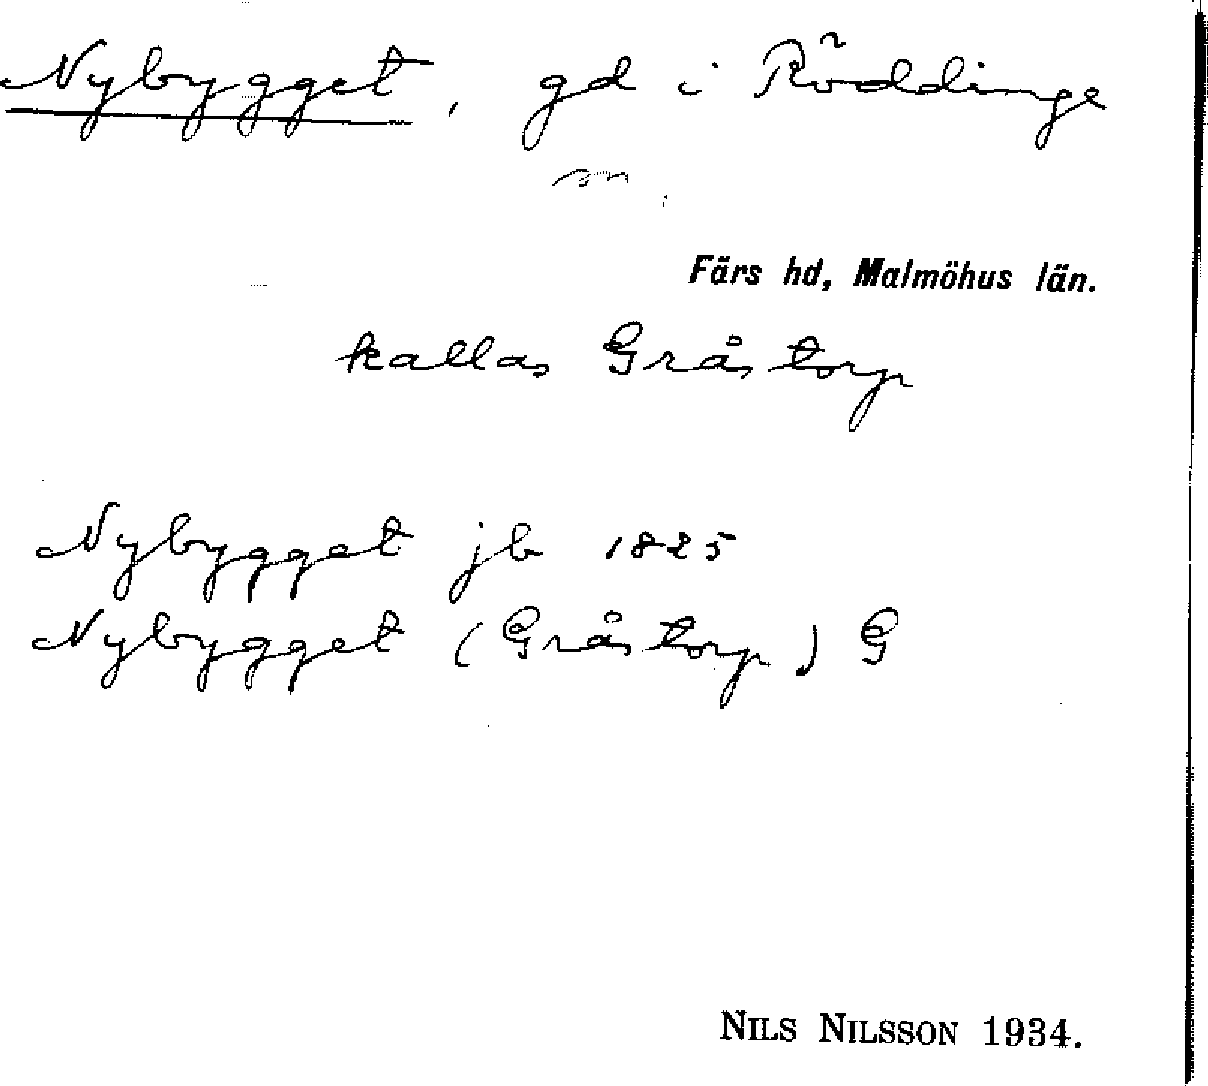 Nybygget, gd i Röddinge
sn.
Färs hd, Malmöhus län.
kallas Gråstorp
Nybygget jb 1825
Nybygget (Gråstorp) G
NILS NILSSON 1934.